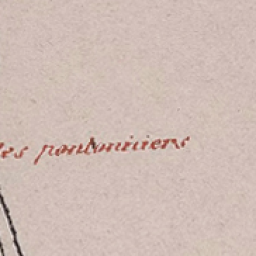 les pontonniers